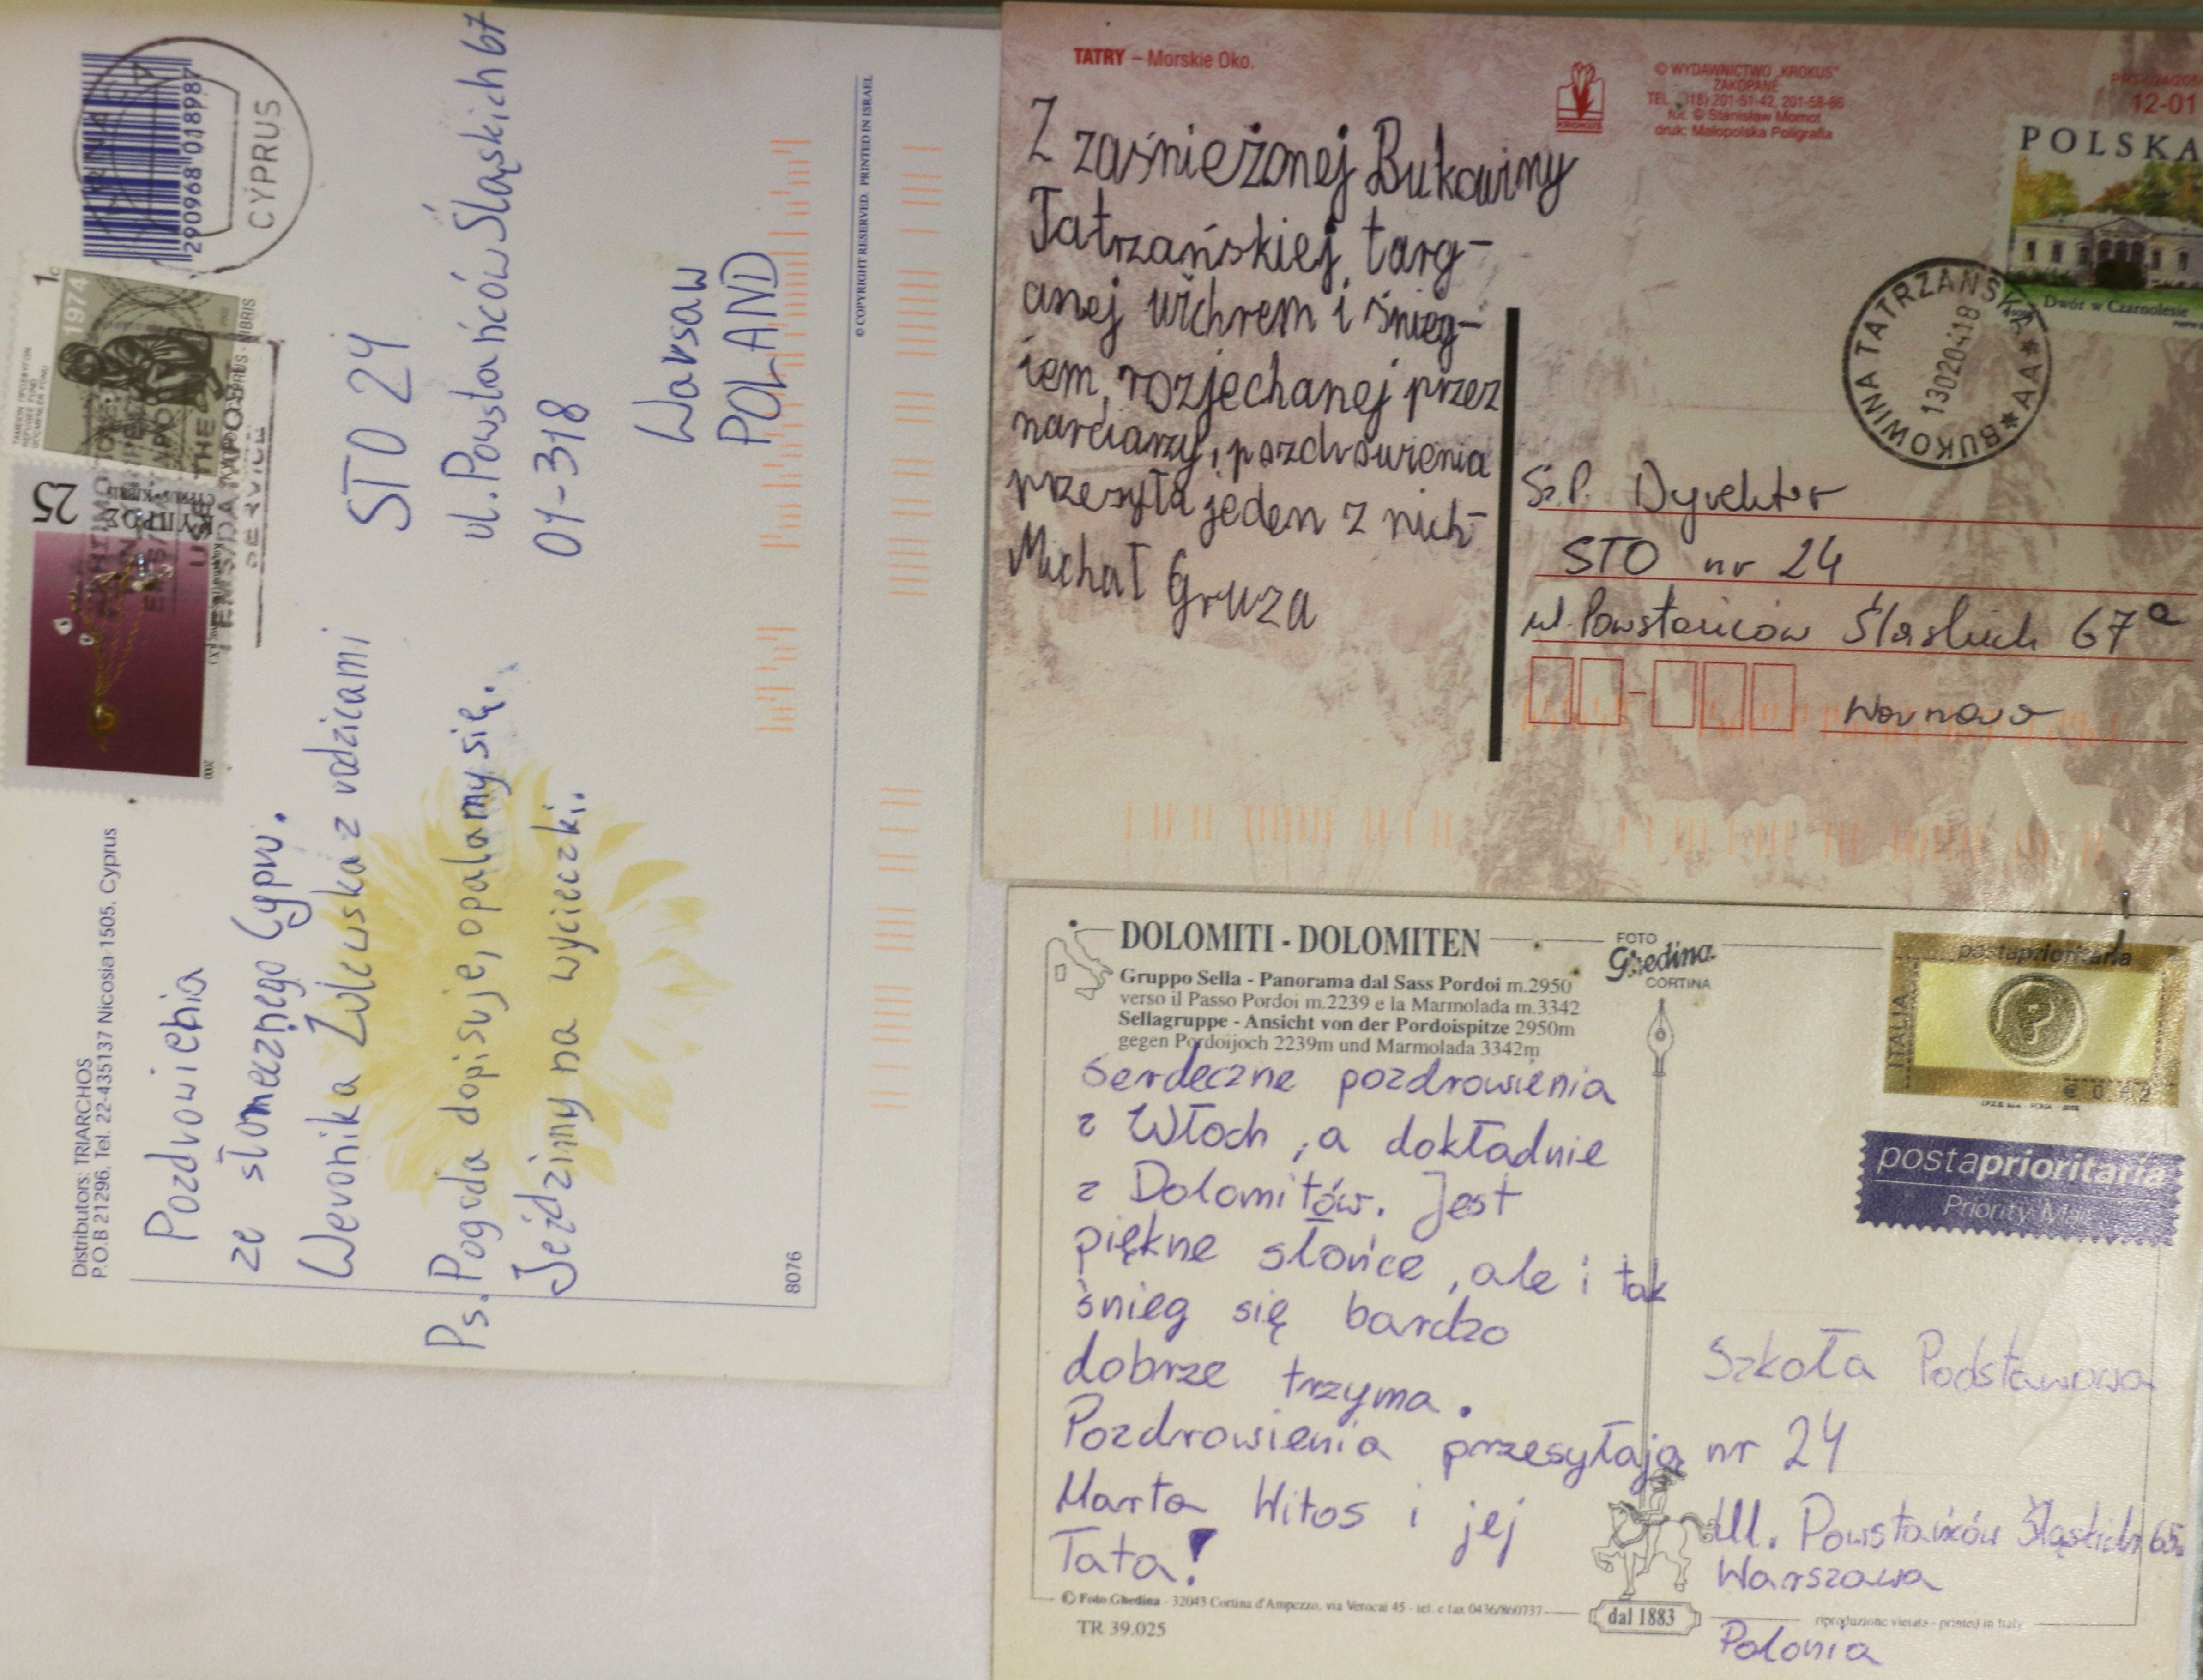 Distributors: TRIARCHOS
P.O.B 21296, Tel. 22-435137 Nicosia 1505, Cyprus
Pozdrowienia
ze słonecznego Cypru.
Weronika Zalewska z rodzicami
Ps. Pogoda dopisuje, opalamy się.
Jeździmy na wycieczki.
8076
STO 24
ul. Powstańców Śląskich 67
01-318
Warsaw
POLAND
© COPYRIGHT RESERVED. PRINTED IN ISRAEL
2909680189871
CYPRUS
1c
1974
25
2000
TATRY – Morskie Oko.
KROKUS
© WYDAWNICTWO „KROKUS"
ZAKOPANE
TEL. (18) 201-51-42, 201-58-86
fot. © Stanisław Momot
druk: Małopolska Poligrafia
12-01
POLSKA
Dwór w Czarnolesie
BUKOWINA TATRZAŃSKA * AA *
130204.18
Z zaśnieżonej Bukowiny
Tatrzańskiej, targ-
anej wichrem i śnieg-
iem, rozjechanej przez
narciarzy, pozdrowienia
przesyła jeden z nich-
Michał Gruza
Sz.P. Dyrektor
STO nr 24
ul. Powstańców Śląskich 67a
Warszawa
DOLOMITI - DOLOMITEN
Gruppo Sella - Panorama dal Sass Pordoi m.2950
verso il Passo Pordoi m.2239 e la Marmolada m.3342
Sellagruppe - Ansicht von der Pordoispitze 2950m
gegen Pordoijoch 2239m und Marmolada 3342m
FOTO
Ghedina
CORTINA
postaprioritaria
ITALIA
€ 0,62
postaprioritaria
Priority Mail
Serdeczne pozdrowienia
z Włoch, a dokładnie
z Dolomitów. Jest
piękne słońce, ale i tak
śnieg się bardzo
dobrze trzyma.
Pozdrowienia przesyłają
Marta Witos i jej
Tata!
Szkoła Podstawowa
nr 24
Ul. Powstańców Śląskich 65a
Warszawa
Polonia
© Foto Ghedina - 32043 Cortina d'Ampezzo, via Verocai 45 - tel. e fax 0436/860737
dal 1883
riproduzione vietata - printed in Italy
TR 39.025